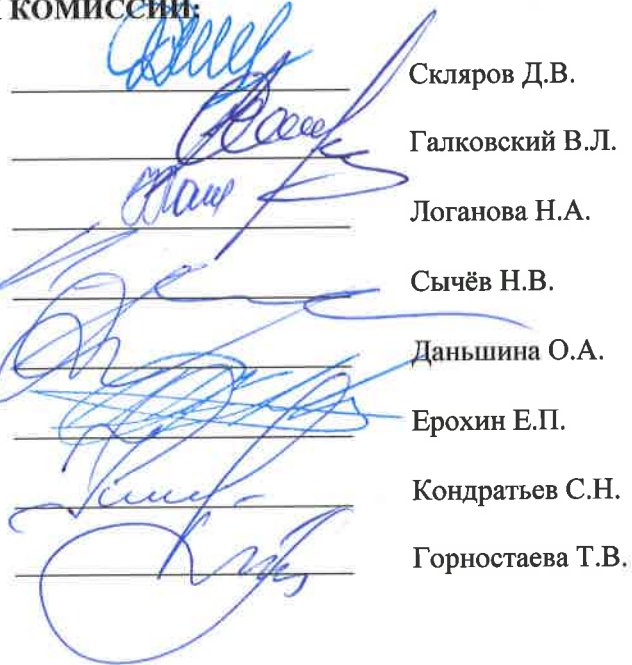 КОМИССИИ:
Скляров Д.В.
Галковский В.Л.
Логанова Н.А.
Сычёв Н.В.
Даньшина О.А.
Ерохин Е.П.
Кондратьев С.Н.
Горностаева Т.В.